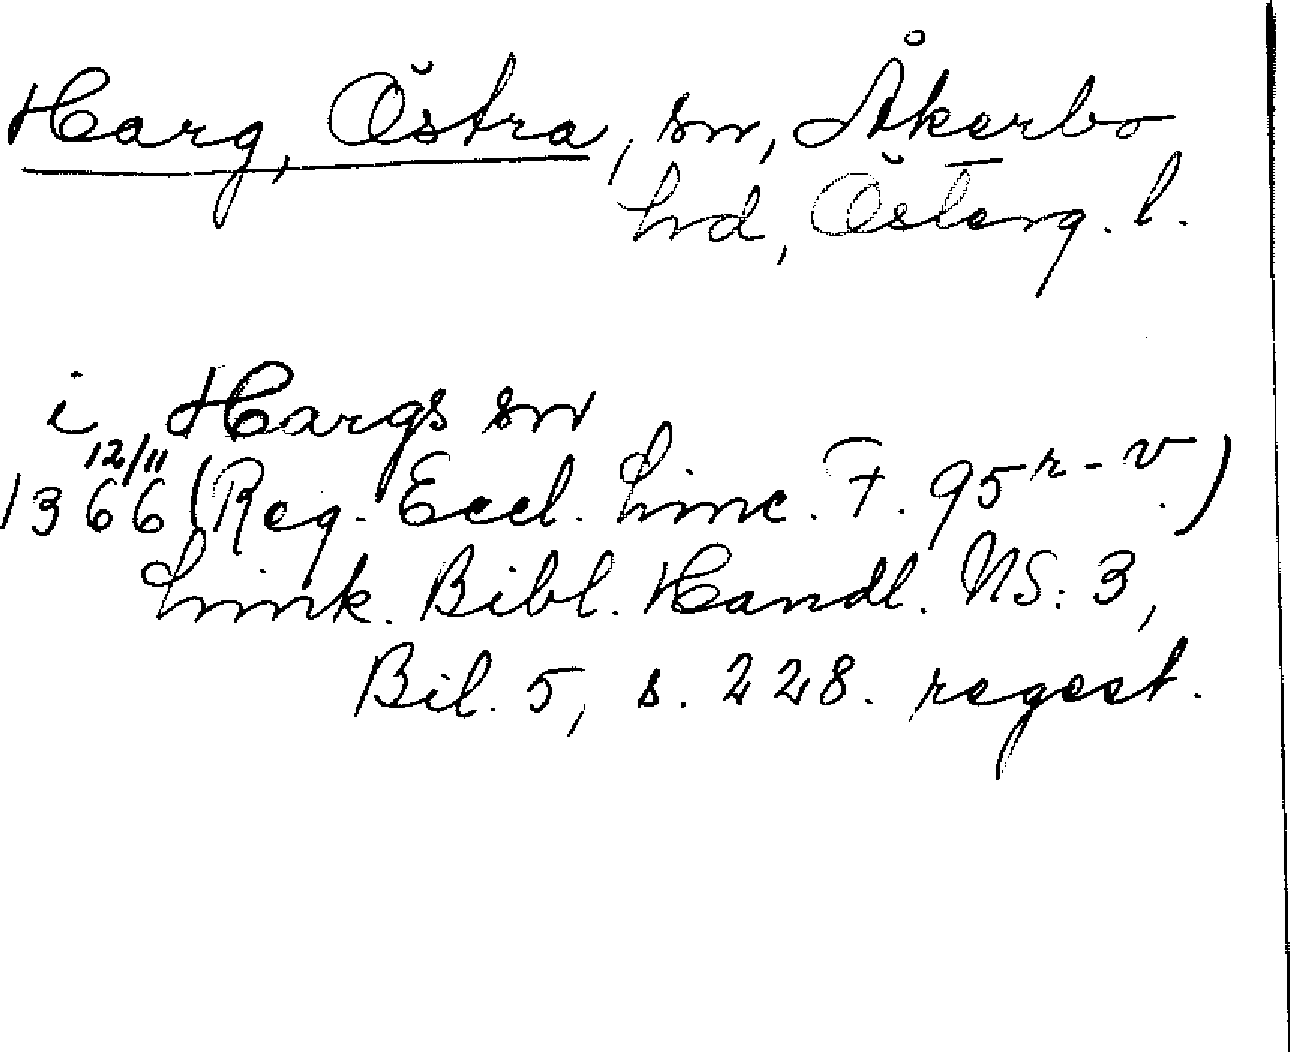 Harg, Östra, sn, Åkerbo
hd, Österg. l.
i Hargs sn
1366 12/11 (Reg. Eccl. Linc. F. 95 r-v.)
Link. Bibl. Handl. NS: 3,
Bil. 5, s. 228. regest.